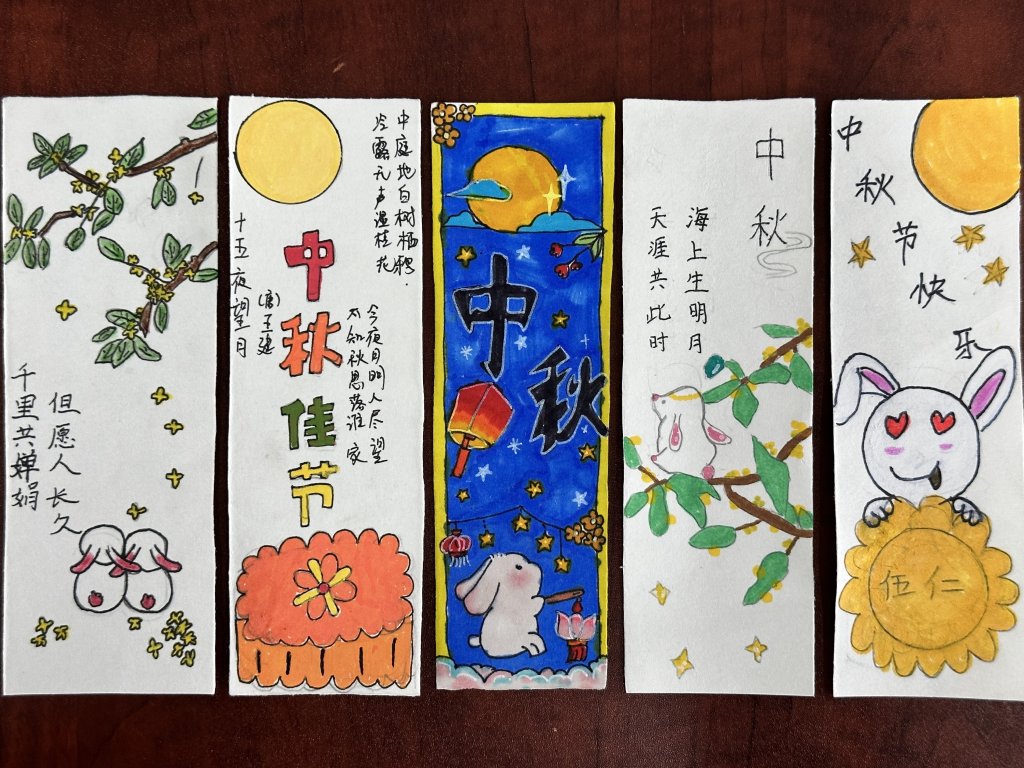 但愿人长久
千里共婵娟
十五夜望月
(唐)王建
中庭地白树栖鸦.
冷露无声湿桂花
今夜月明人尽望
不知秋思落谁家
中秋佳节
中秋
中秋
海上生明月
天涯共此时
中秋节快乐
伍仁